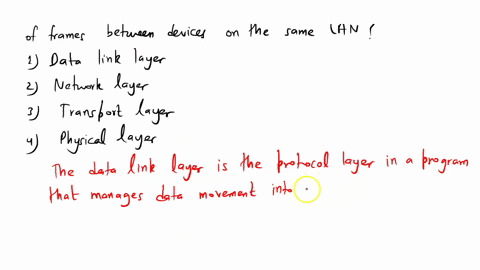 of frames between devices on the same LAN ?
1) Data link layer
2) Network layer
3) Transport layer
4) Physical layer
The data link layer is the protocol layer in a program
that manages data movement into